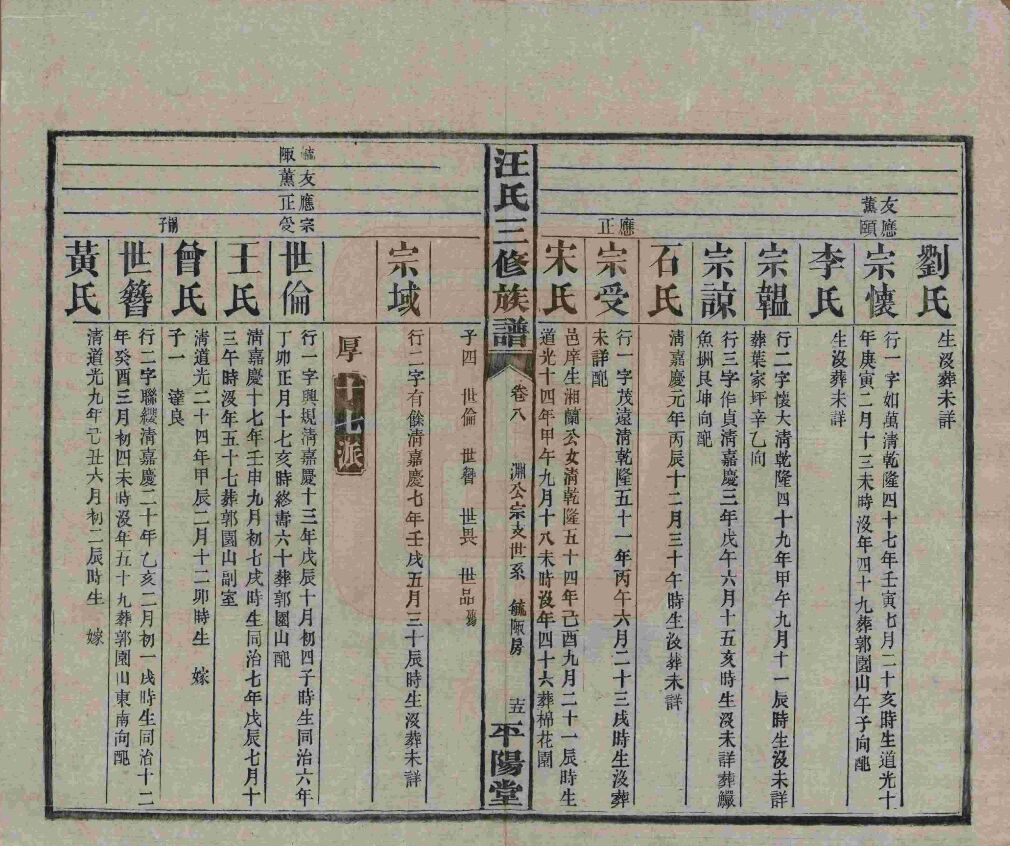 劉氏
生沒葬未詳
友應
薰頤
宗懷
行一字如萬清乾隆四十七年壬寅七月二十亥時生道光十
年庚寅二月十三未時沒年四十九葬郭園山午子向配
李氏
生沒葬未詳
宗韞
行二字懷大清乾隆四十九年甲午九月十一辰時生沒未詳
葬葉家坪辛乙向
宗諒
行三字作貞清嘉慶三年戊午六月十五亥時生沒未詳葬鱖
魚垇艮坤向配
石氏
清嘉慶元年丙辰十二月三十午時生沒葬未詳
應
正
宗受
行一字茂遠清乾隆五十一年丙午六月二十三戌時生沒葬
未詳配
宋氏
邑庠生湘蘭公女清乾隆五十四年己酉九月二十一辰時生
道光十四年甲午九月十八未時沒年四十六葬棉花園
汪氏三修族譜
卷八
淵公宗支世系
毓陬房
十五
平陽堂
子四 世倫 世簪 世畏 世品殤
宗域
行二字有餘清嘉慶七年壬戌五月三十辰時生沒葬未詳
厚 十七派
毓友應宗
陬薰正受
世倫
行一字興規清嘉慶十三年戊辰十月初四子時生同治六年
丁卯正月十七亥時終壽六十葬郭園山配
王氏
清嘉慶十七年壬申九月初七戌時生同治七年戊辰七月十
三午時沒年五十七葬郭園山副室
嗣
子
曾氏
清道光二十四年甲辰二月十二卯時生 嫁
子一 達良
世簪
行二字聯纓清嘉慶二十年乙亥二月初一戌時生同治十二
年癸酉三月初四未時沒年五十九葬郭園山東南向配
黃氏
清道光九年己丑六月初二辰時生 嫁